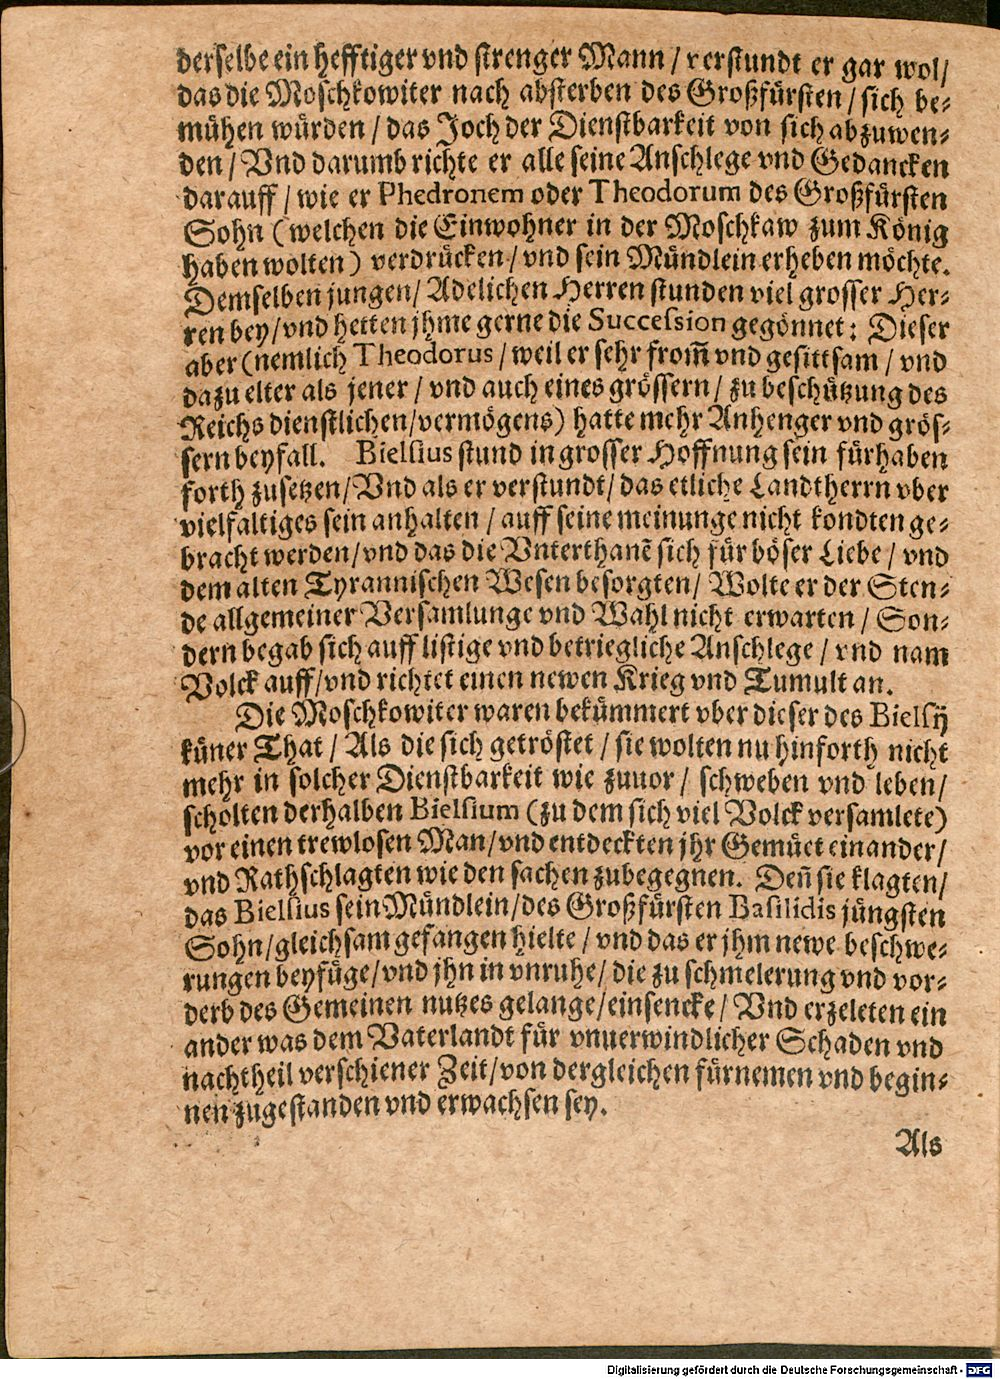 derselbe ein hefftiger vnd strenger Mann / verstundt er gar wol /
das die Moschkowiter nach absterben des Großfürsten / sich be-
mühen würden / das Joch der Dienstbarkeit von sich abzuwen-
den / Vnd darumb richte er alle seine Anschlege vnd Gedancken
darauff / wie er Phedronem oder Theodorum des Großfürsten
Sohn (welchen die Einwohner in der Moschkaw zum König
haben wolten) verdrücken / vnd sein Mündlein erheben möchte.
Demselben jungen / Adelichen Herren stunden viel grosser Her-
ren bey / vnd hetten jhme gerne die Succession gegönnet: Dieser
aber (nemlich Theodorus / weil er sehr from̃ vnd gesittsam / vnd
dazu elter als jener / vnd auch eines grössern / zu beschützung des
Reichs dienstlichen / vermögens) hatte mehr Anhenger vnd grös-
sern beyfall. Bielsius stund in grosser Hoffnung sein fürhaben
forth zusetzen / Vnd als er verstundt / das etliche Landtherrn vber
vielfaltiges sein anhalten / auff seine meinunge nicht kondten ge-
bracht werden / vnd das die Vnterthanẽ sich für böser Liebe / vnd
dem alten Tyrannischen Wesen besorgten / Wolte er der Sten-
de allgemeiner Versamlunge vnd Wahl nicht erwarten / Son-
dern begab sich auff listige vnd betriegliche Anschlege / vnd nam
Volck auff / vnd richtet einen newen Krieg vnd Tumult an.
Die Moschkowiter waren bekümmert vber dieser des Bielsij
küner That / Als die sich getröstet / sie wolten nu hinforth nicht
mehr in solcher Dienstbarkeit wie zuuor / schweben vnd leben /
scholten derhalben Bielsium (zu dem sich viel Volck versamlete)
vor einen trewlosen Man / vnd entdeckten jhr Gemüet einander /
vnd Rathschlagten wie den sachen zubegegnen. Deñ sie klagten /
das Bielsius sein Mündlein / des Großfürsten Basilidis jüngsten
Sohn / gleichsam gefangen hielte / vnd das er jhm newe beschwe-
rungen beyfüge / vnd jhn in vnruhe / die zu schmelerung vnd vor-
derb des Gemeinen nutzes gelange / einsencke / Vnd erzeleten ein
ander was dem Vaterlandt für vnuerwindlicher Schaden vnd
nachtheil verschiener Zeit / von dergleichen fürnemen vnd begin-
nen zugestanden vnd erwachsen sey.
Als
Digitalisierung gefördert durch die Deutsche Forschungsgemeinschaft - DFG